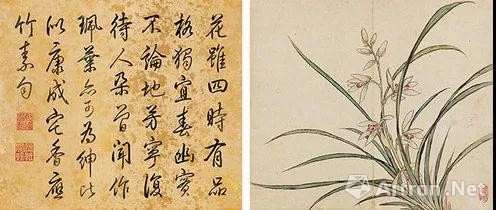 花雖四時有品
格獨宜春幽實
不論地芳寧復
待人朶曾聞作
珮葉亦可為紳比
似康成宅香應
竹素勻
Artron.Net